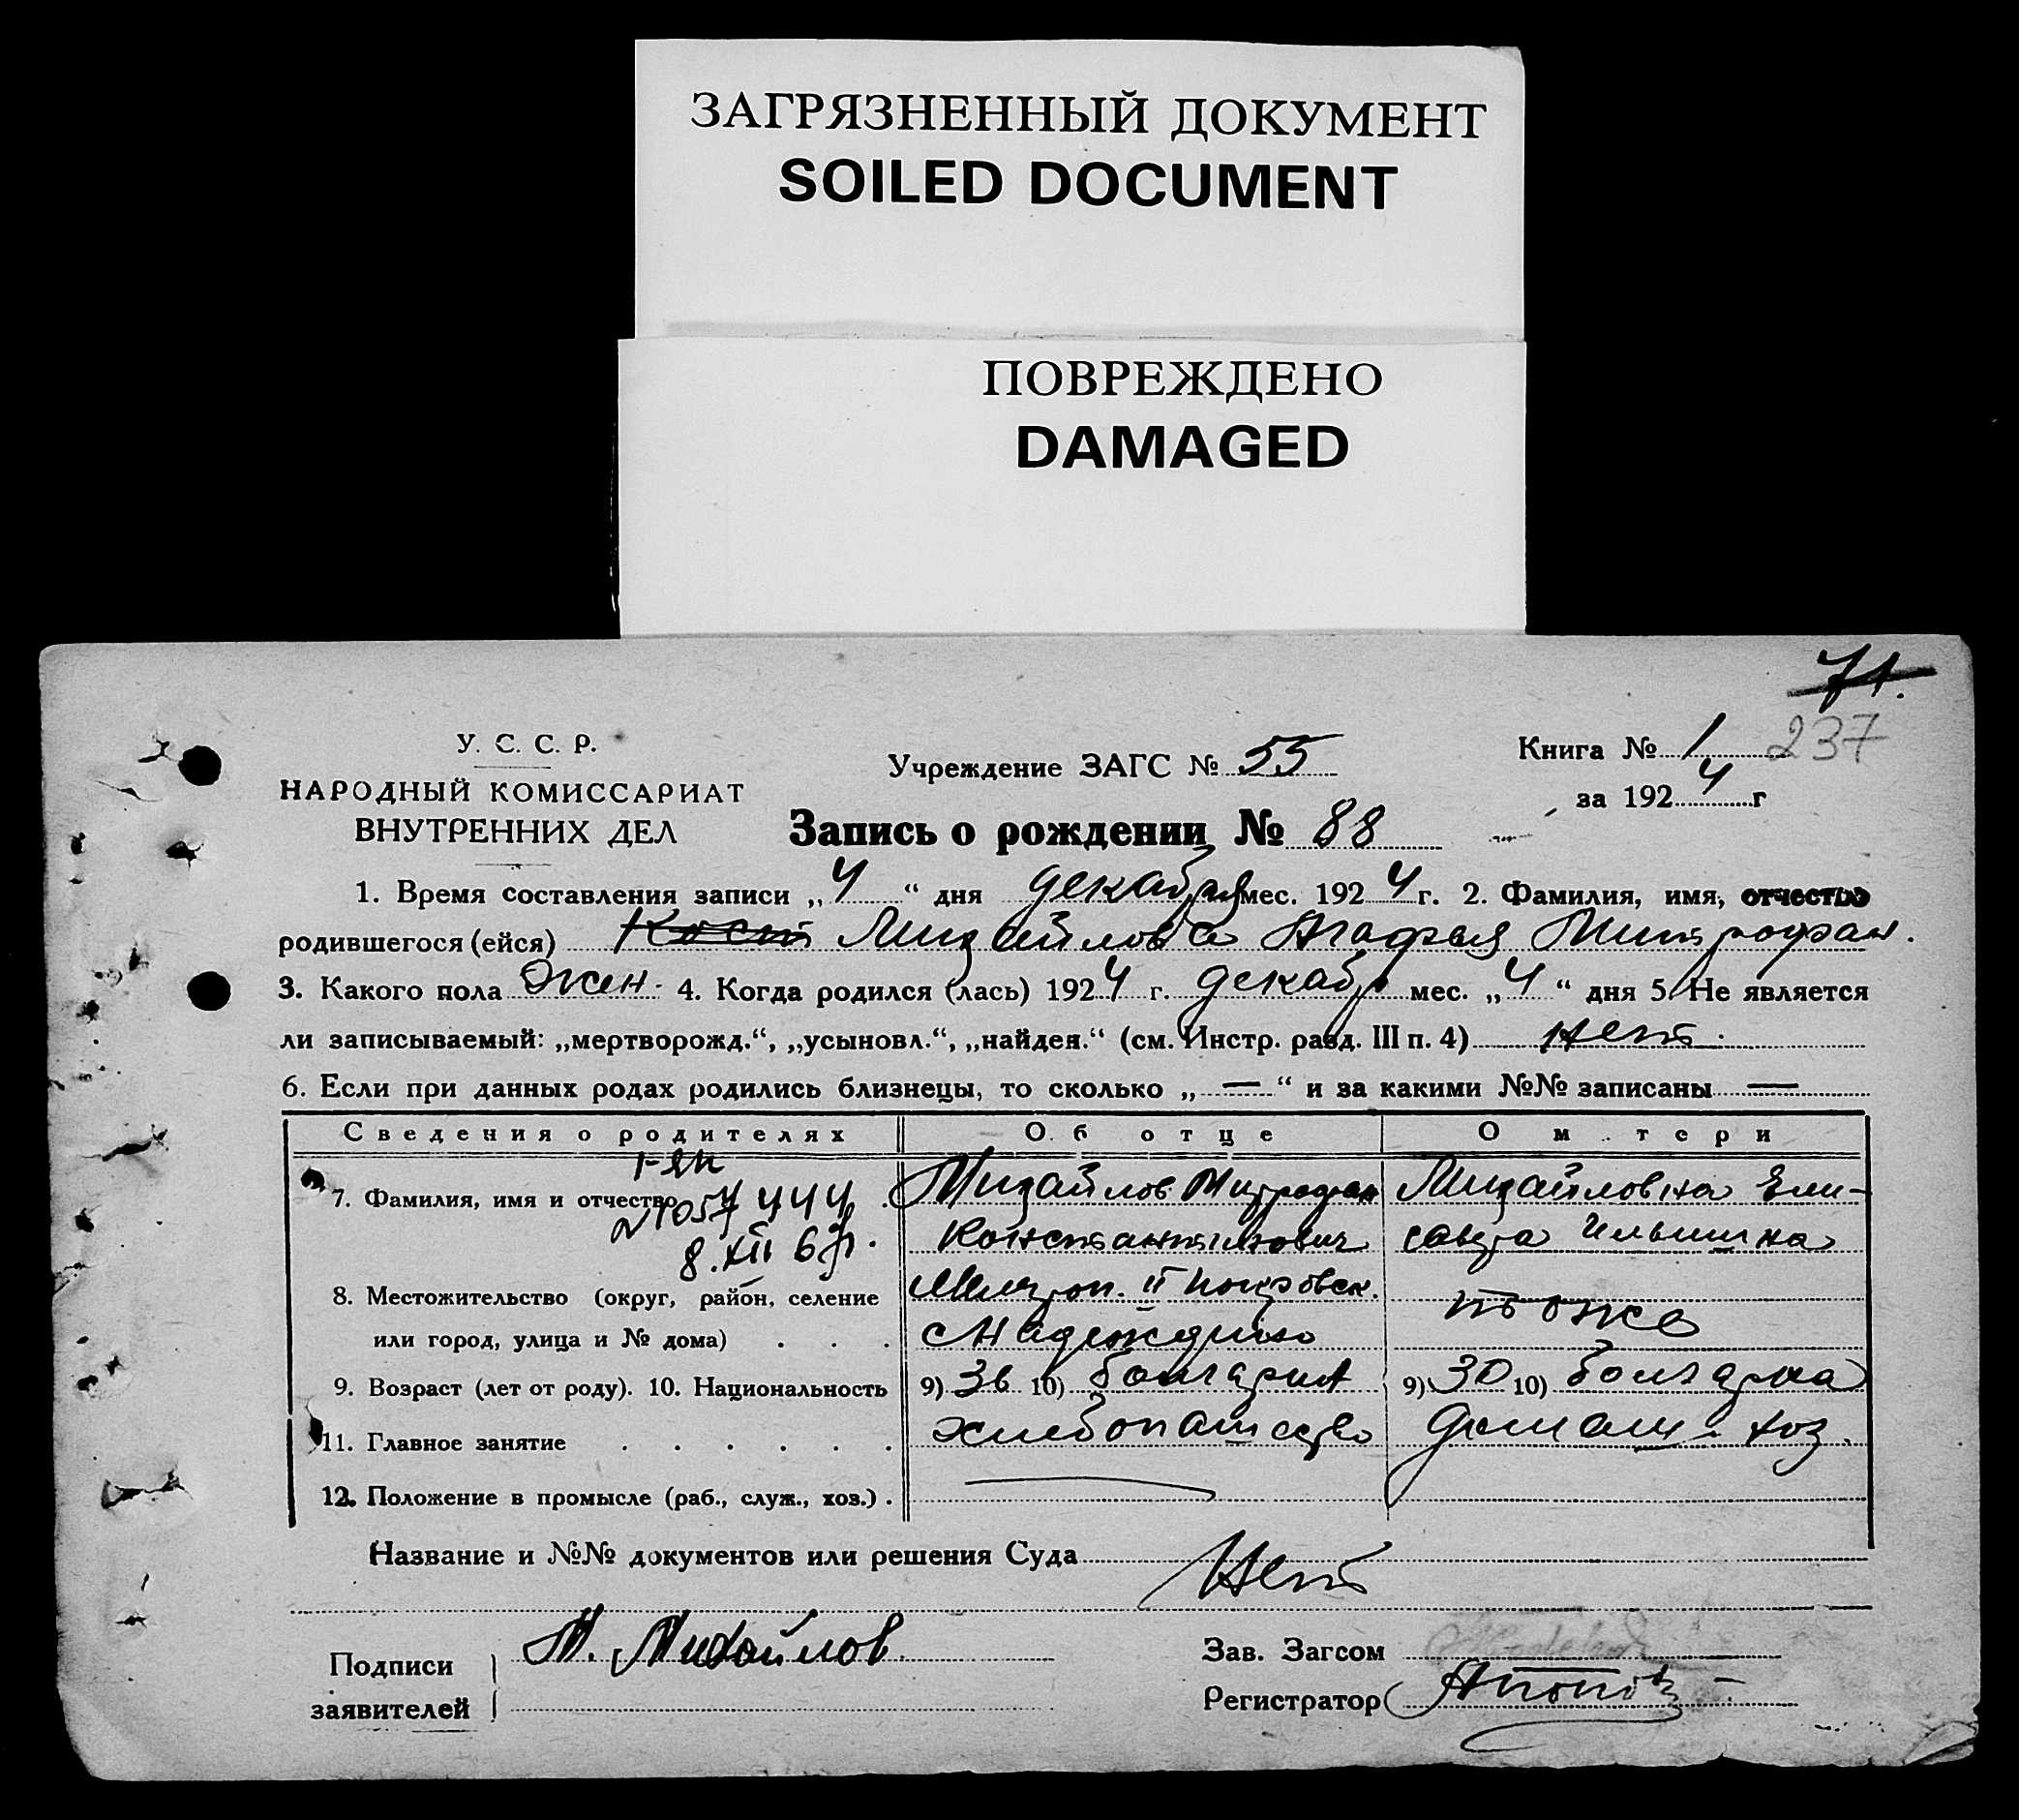 ЗАГРЯЗНЕННЫЙ ДОКУМЕНТ
SOILED DOCUMENT
ПОВРЕЖДЕНО
DAMAGED
71.
У. С. С. Р.
НАРОДНЫЙ КОМИССАРИАТ
ВНУТРЕННИХ ДЕЛ
Учреждение ЗАГС № 55
Книга № 1 237
за 1924 г
Запись о рождении № 88
1. Время составления записи „4“ дня декабря мес. 1924 г. 2. Фамилия, имя, отчество
родившегося (ейся) Михайлова Агафья Митрофан.
3. Какого пола Жен. 4. Когда родился (лась) 1924 г. декабр мес. „4“ дня 5. Не является
ли записываемый: „мертворожд.“, „усыновл.“, „найден.“ (см. Инстр. разд. III п. 4) нет.
6. Если при данных родах родились близнецы, то сколько „—“ и за какими №№ записаны —
Сведения о родителях Об отце О м тери
7. Фамилия, имя и отчество Михайлов Митрофан Михайловна Ели-
8.XII 6 Константинович савета Ильинична
8. Местожительство (округ, район, селение Мелитоп. II Покровск.
или город, улица и № дома) . . . с Надеждино тоже
9. Возраст (лет от роду). 10. Национальность 9) 36 10) болгарин 9) 30 10) болгарка
11. Главное занятие . . . . . . хлебопашество домаш. хоз.
12. Положение в промысле (раб., служ., хоз.) . —
Название и №№ документов или решения Суда Нет
Подписи заявителей М. Михайлов.
Зав. Загсом
Регистратор